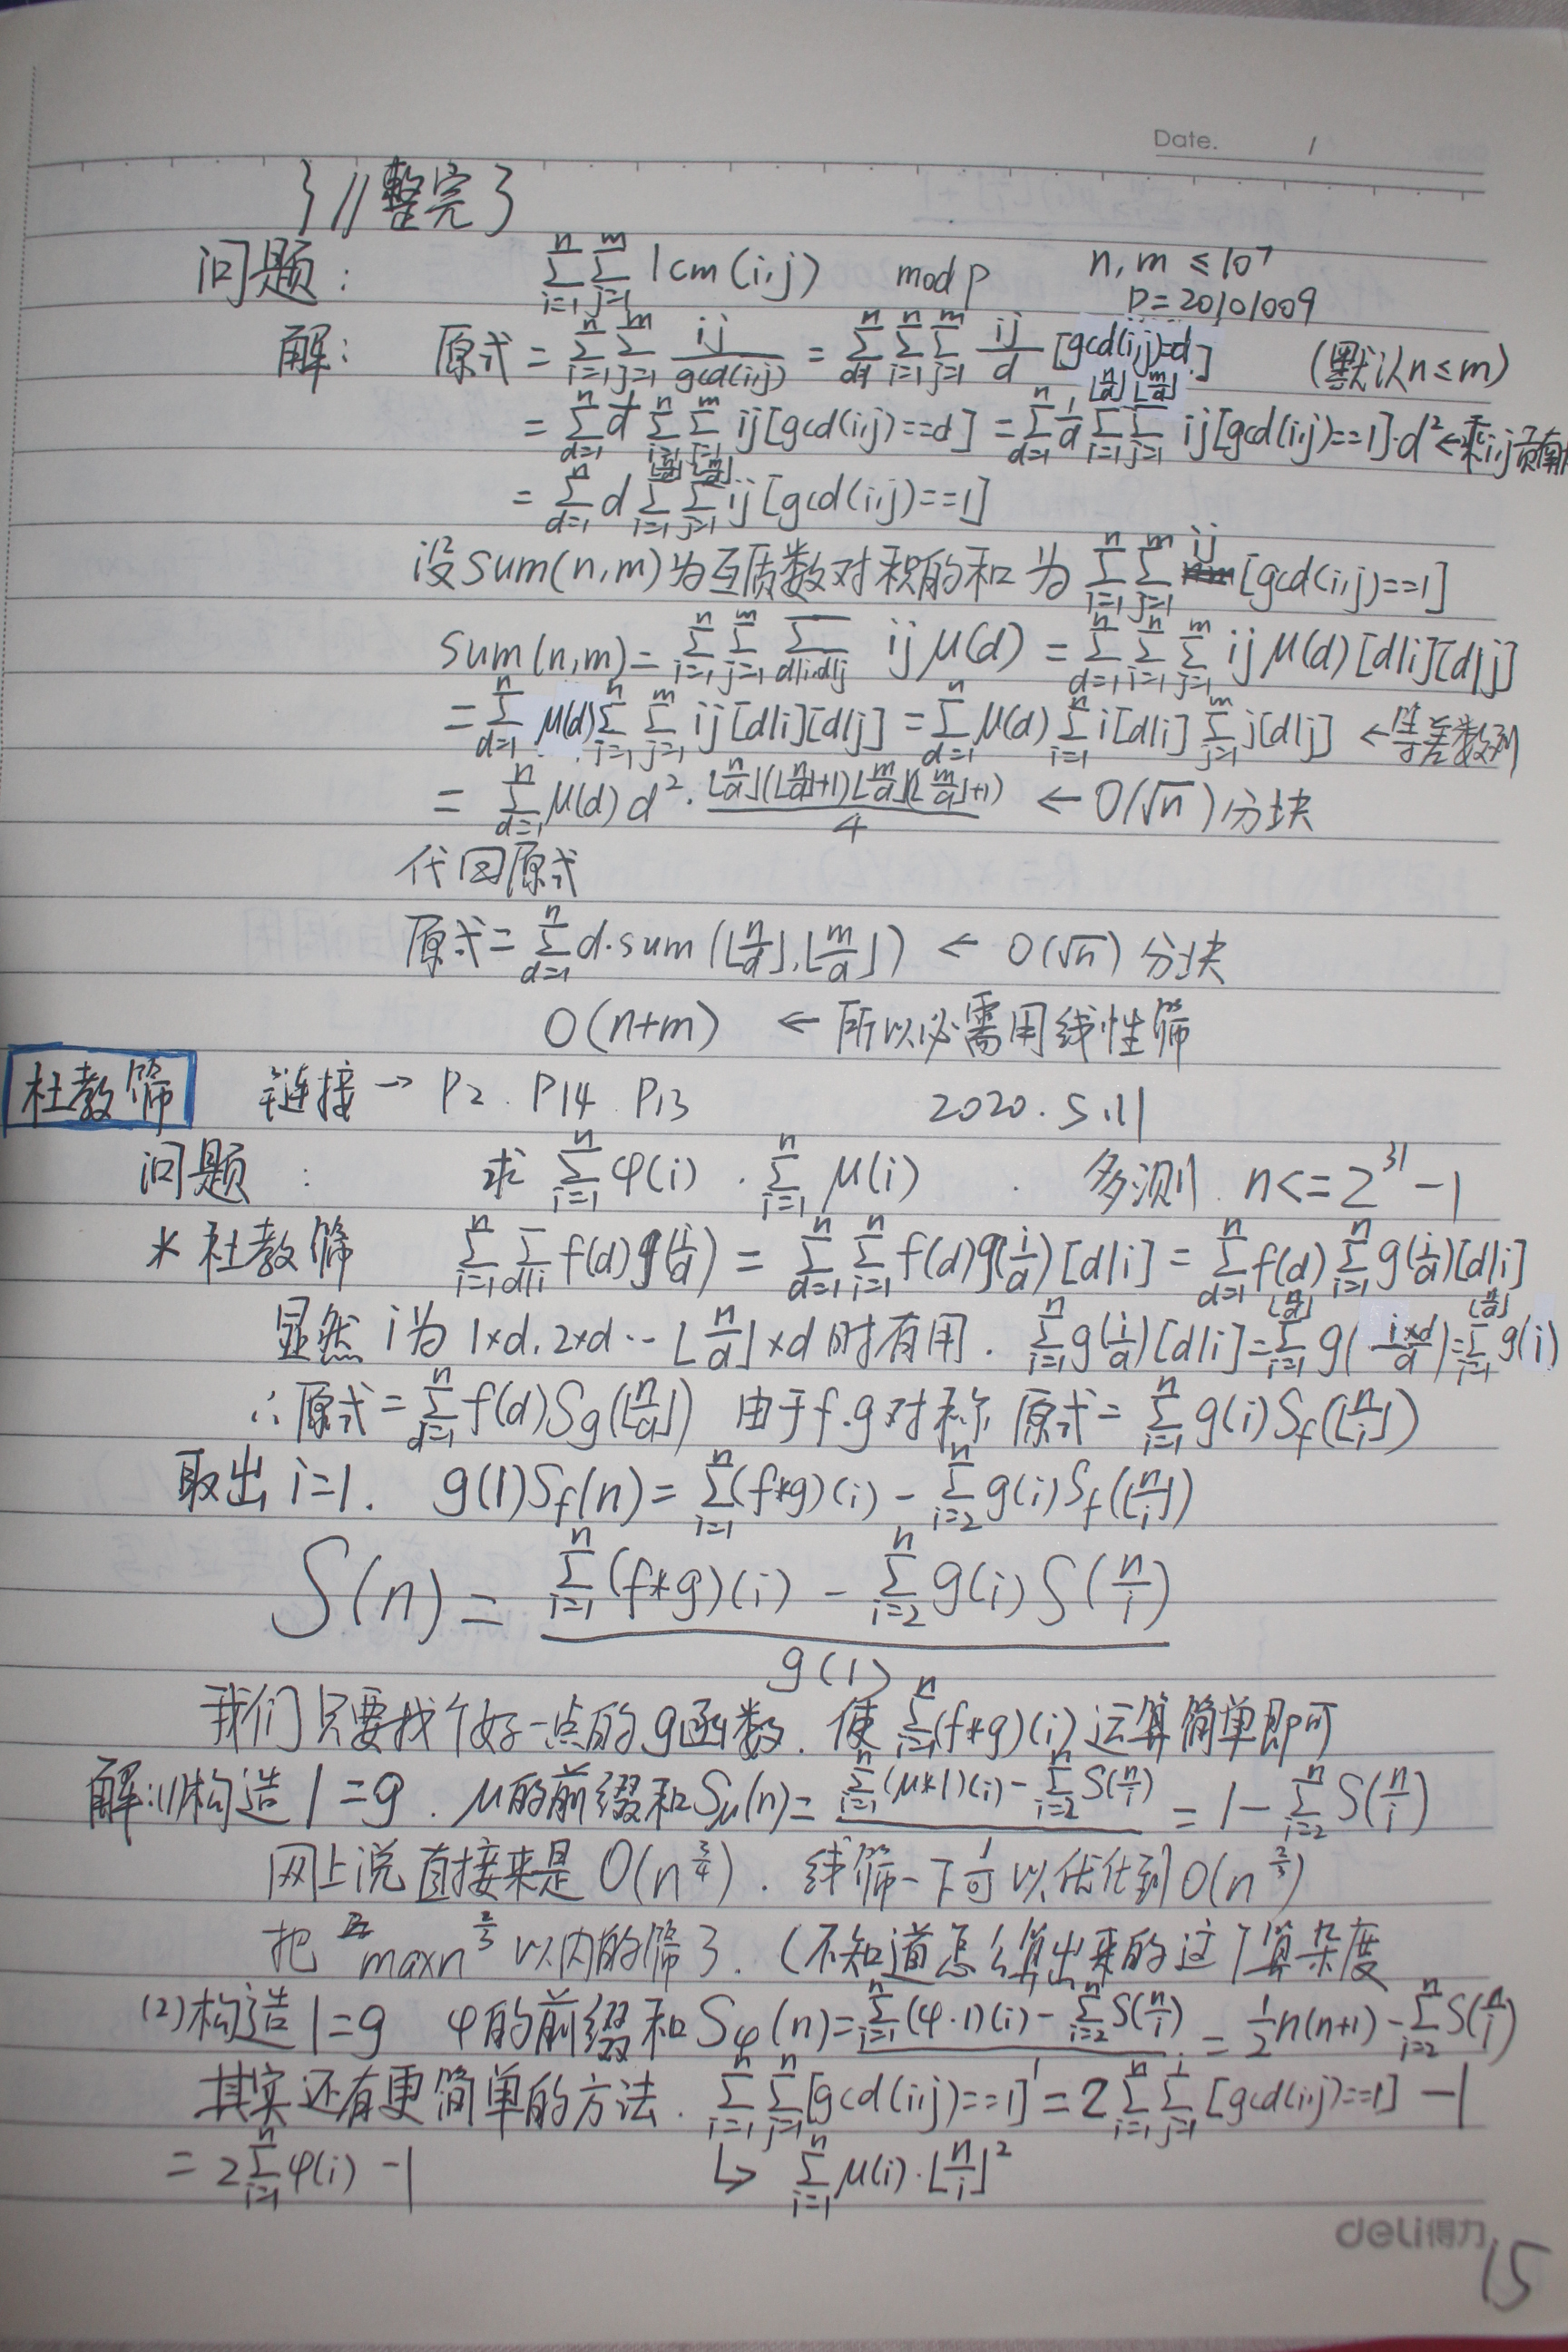 Date. /
} // 整完了
问题: ∑_{i=1}^{n}∑_{j=1}^{m} lcm(i,j) mod p n,m ≤ 10^7
P=20101009
解: 原式=∑_{i=1}^{n}∑_{j=1}^{m} ij/gcd(i,j) = ∑_{d=1}^{n}∑_{i=1}^{n}∑_{j=1}^{m} ij/d [gcd(i,j)=d] (默认n≤m)
= ∑_{d=1}^{n} 1/d ∑_{i=1}^{n}∑_{j=1}^{m} ij[gcd(i,j)==d] = ∑_{d=1}^{n} 1/d ∑_{i=1}^{⌊n/d⌋}∑_{j=1}^{⌊m/d⌋} ij[gcd(i,j)==1]·d² ← 乘i,j
= ∑_{d=1}^{n} d ∑_{i=1}^{⌊n/d⌋}∑_{j=1}^{⌊m/d⌋} ij[gcd(i,j)==1]
设sum(n,m)为互质数对积的和 为 ∑_{i=1}^{n}∑_{j=1}^{m} ij [gcd(i,j)==1]
sum(n,m)=∑_{i=1}^{n}∑_{j=1}^{m}∑_{d|i,d|j} ij μ(d) = ∑_{d=1}^{n}∑_{i=1}^{n}∑_{j=1}^{m} ij μ(d)[d|i][d|j]
= ∑_{d=1}^{n} μ(d)∑_{i=1}^{n}∑_{j=1}^{m} ij[d|i][d|j] = ∑_{d=1}^{n} μ(d)∑_{i=1}^{n} i[d|i]∑_{j=1}^{m} j[d|j] ← 等差数列
= ∑_{d=1}^{n} μ(d)d²·⌊n/d⌋(⌊n/d⌋+1)⌊m/d⌋(⌊m/d⌋+1)/4 ← O(√n)分块
代回原式
原式=∑_{d=1}^{n} d·sum(⌊n/d⌋,⌊m/d⌋) ← O(√n)分块
O(n+m) ← 所以必需用线性筛
杜教筛 链接 → P2. P14 P13 2020.5.11
问题: 求 ∑_{i=1}^{n} φ(i). ∑_{i=1}^{n} μ(i) . 多测 n<=2^31-1
* 杜教筛 ∑_{i=1}^{n}∑_{d|i} f(d)g(i/d) = ∑_{d=1}^{n}∑_{i=1}^{n} f(d)g(i/d)[d|i] = ∑_{d=1}^{n} f(d)∑_{i=1}^{n} g(i/d)[d|i]
显然 i为 1×d, 2×d … ⌊n/d⌋×d时有用. ∑_{i=1}^{n} g(i/d)[d|i]=∑_{i=1}^{⌊n/d⌋} g(i×d/d)=∑_{i=1}^{⌊n/d⌋} g(i)
∴原式=∑_{d=1}^{n} f(d)Sg(⌊n/d⌋) 由于f.g对称 原式=∑_{i=1}^{n} g(i)S_f(⌊n/i⌋)
取出i=1. g(1)S_f(n)=∑_{i=1}^{n}(f*g)(i) - ∑_{i=2}^{n} g(i)S_f(⌊n/i⌋)
S(n) = (∑_{i=1}^{n}(f*g)(i) - ∑_{i=2}^{n} g(i)S(n/i)) / g(1)
我们只要找个好一点的g函数. 使∑_{i=1}^{n}(f*g)(i)运算简单即可
解:(1)构造1=g. μ的前缀和Sμ(n)=(∑_{i=1}^{n}(μ*1)(i)-∑_{i=2}^{n} S(n/i))/1 = 1-∑_{i=2}^{n} S(n/i)
网上说直接来是O(n^{3/4}). 线筛一下可以优化到O(n^{2/3})
把 maxn^{2/3} 以内的筛了. (不知道怎么算出来的这个算杂度
(2)构造1=g φ的前缀和Sφ(n)=(∑_{i=1}^{n}(φ·1)(i)-∑_{i=2}^{n} S(n/i))/1 = 1/2n(n+1)-∑_{i=2}^{n} S(n/i)
其实还有更简单的方法. ∑_{i=1}^{n}∑_{j=1}^{n}[gcd(i,j)==1]=2∑_{i=1}^{n}∑_{j=1}^{i}[gcd(i,j)==1] -1
= 2∑_{i=1}^{n} φ(i) -1 ↳ ∑_{i=1}^{n} μ(i)·⌊n/i⌋²
deli得力 15